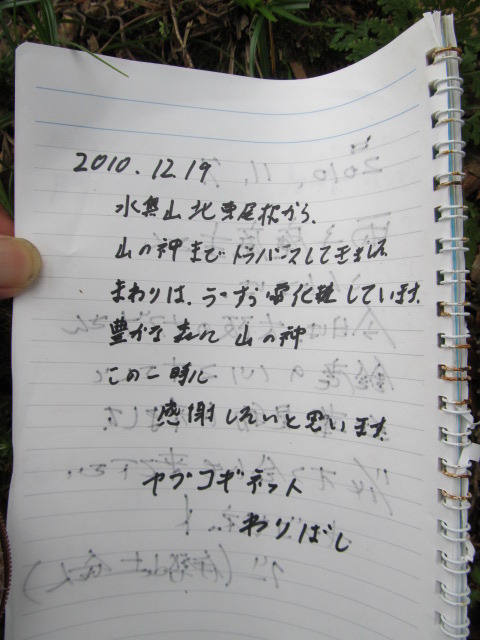 2010.12.19
水無山北東尾根から、
山の神までトラバースしてきました
まわりは、うっすら雪化粧しています。
豊かな森に 山の神
この一時に
感謝したいと思います。
ヤブコギネット
わりばし